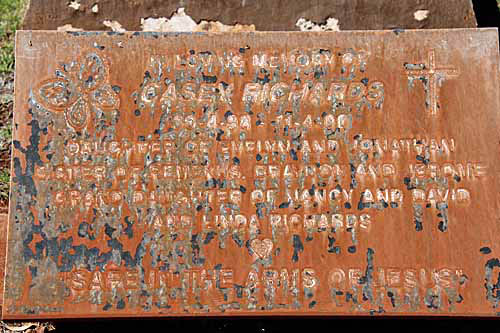 IN LOVING MEMORY OF
CASEY RICHARDS
DAUGHTER OF AND JONATHAN
SISTER OF GRAYDON AND JEROME
GRAND DAUGHTER OF NANCY AND DAVID
AND LINDA RICHARDS
"SAFE IN THE ARMS OF JESUS"